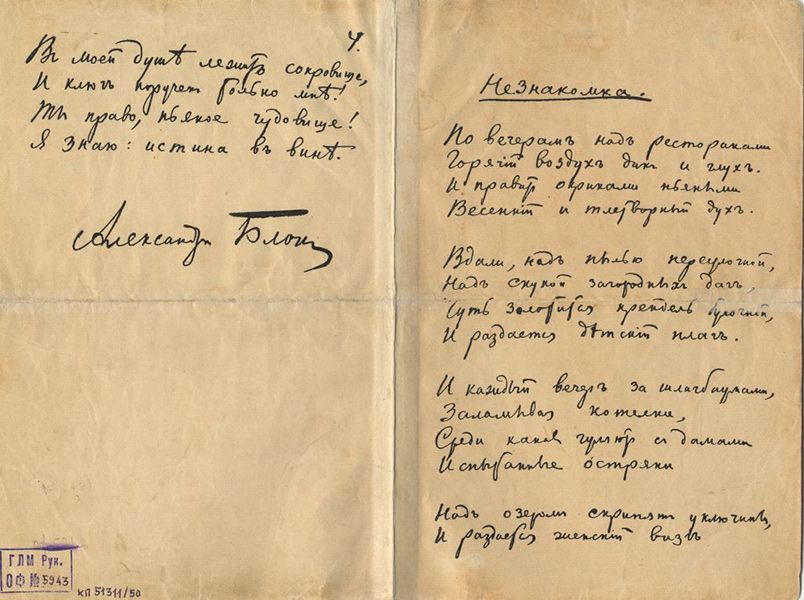 4.
Въ моей душѣ лежитъ сокровище,
И ключъ порученъ только мнѣ!
Ты право, пьяное чудовище!
Я знаю: истина въ винѣ.
Александръ Блокъ
ГЛМ Рук.
ОФ № 5943
КП 51311/50
Незнакомка.
По вечерамъ надъ ресторанами
Горячій воздухъ дикъ и глухъ.
И правитъ окриками пьяными
Весенній и тлетворный духъ.
Вдали, надъ пылью переулочной,
Надъ скукой загородныхъ дачъ,
Чуть золотится крендель булочной,
И раздается дѣтскій плачъ.
И каждый вечеръ за шлагбаумами,
Заламывая котелки,
Среди канавъ гуляютъ съ дамами
Испытанные остряки
Надъ озеромъ скрипятъ уключины,
И раздается женскій визгъ